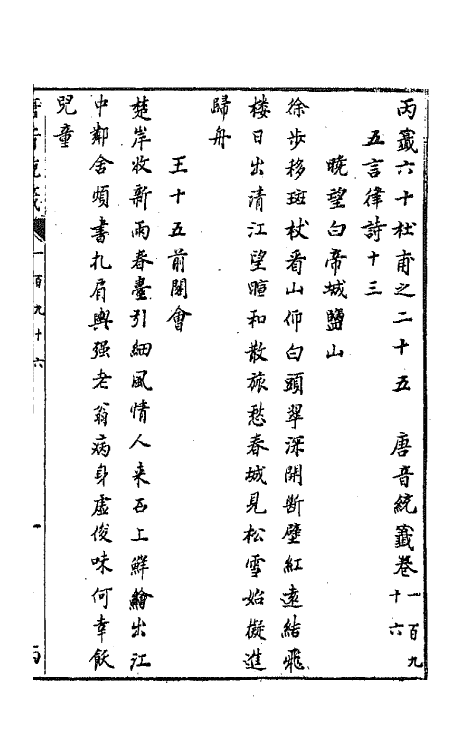 丙籖六十杜甫之二十五　唐音統籖卷一百九十六
五言律詩十三
曉望白帝城鹽山
徐步移斑杖看山仰白頭翠深開斷壁紅遠結飛
楼日出清江望暄和散旅愁春城見松雪始擬進
歸舟
王十五前閣會
楚岸收新雨春臺引細風情人来石上鮮鱠出江
中鄰舍煩書札肩輿强老翁病身虛俊味何幸飫
兒童
唐音統籖
一百九十六
一
丙